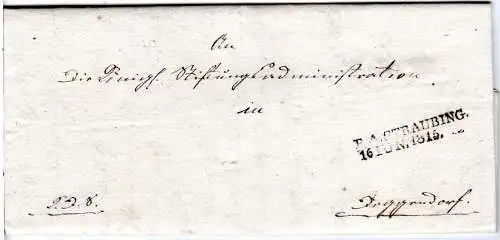 An
die Königl. Stiftungsadministration
in
P. A. STRAUBING.
16 IUN. 1815.
Deggendorf.